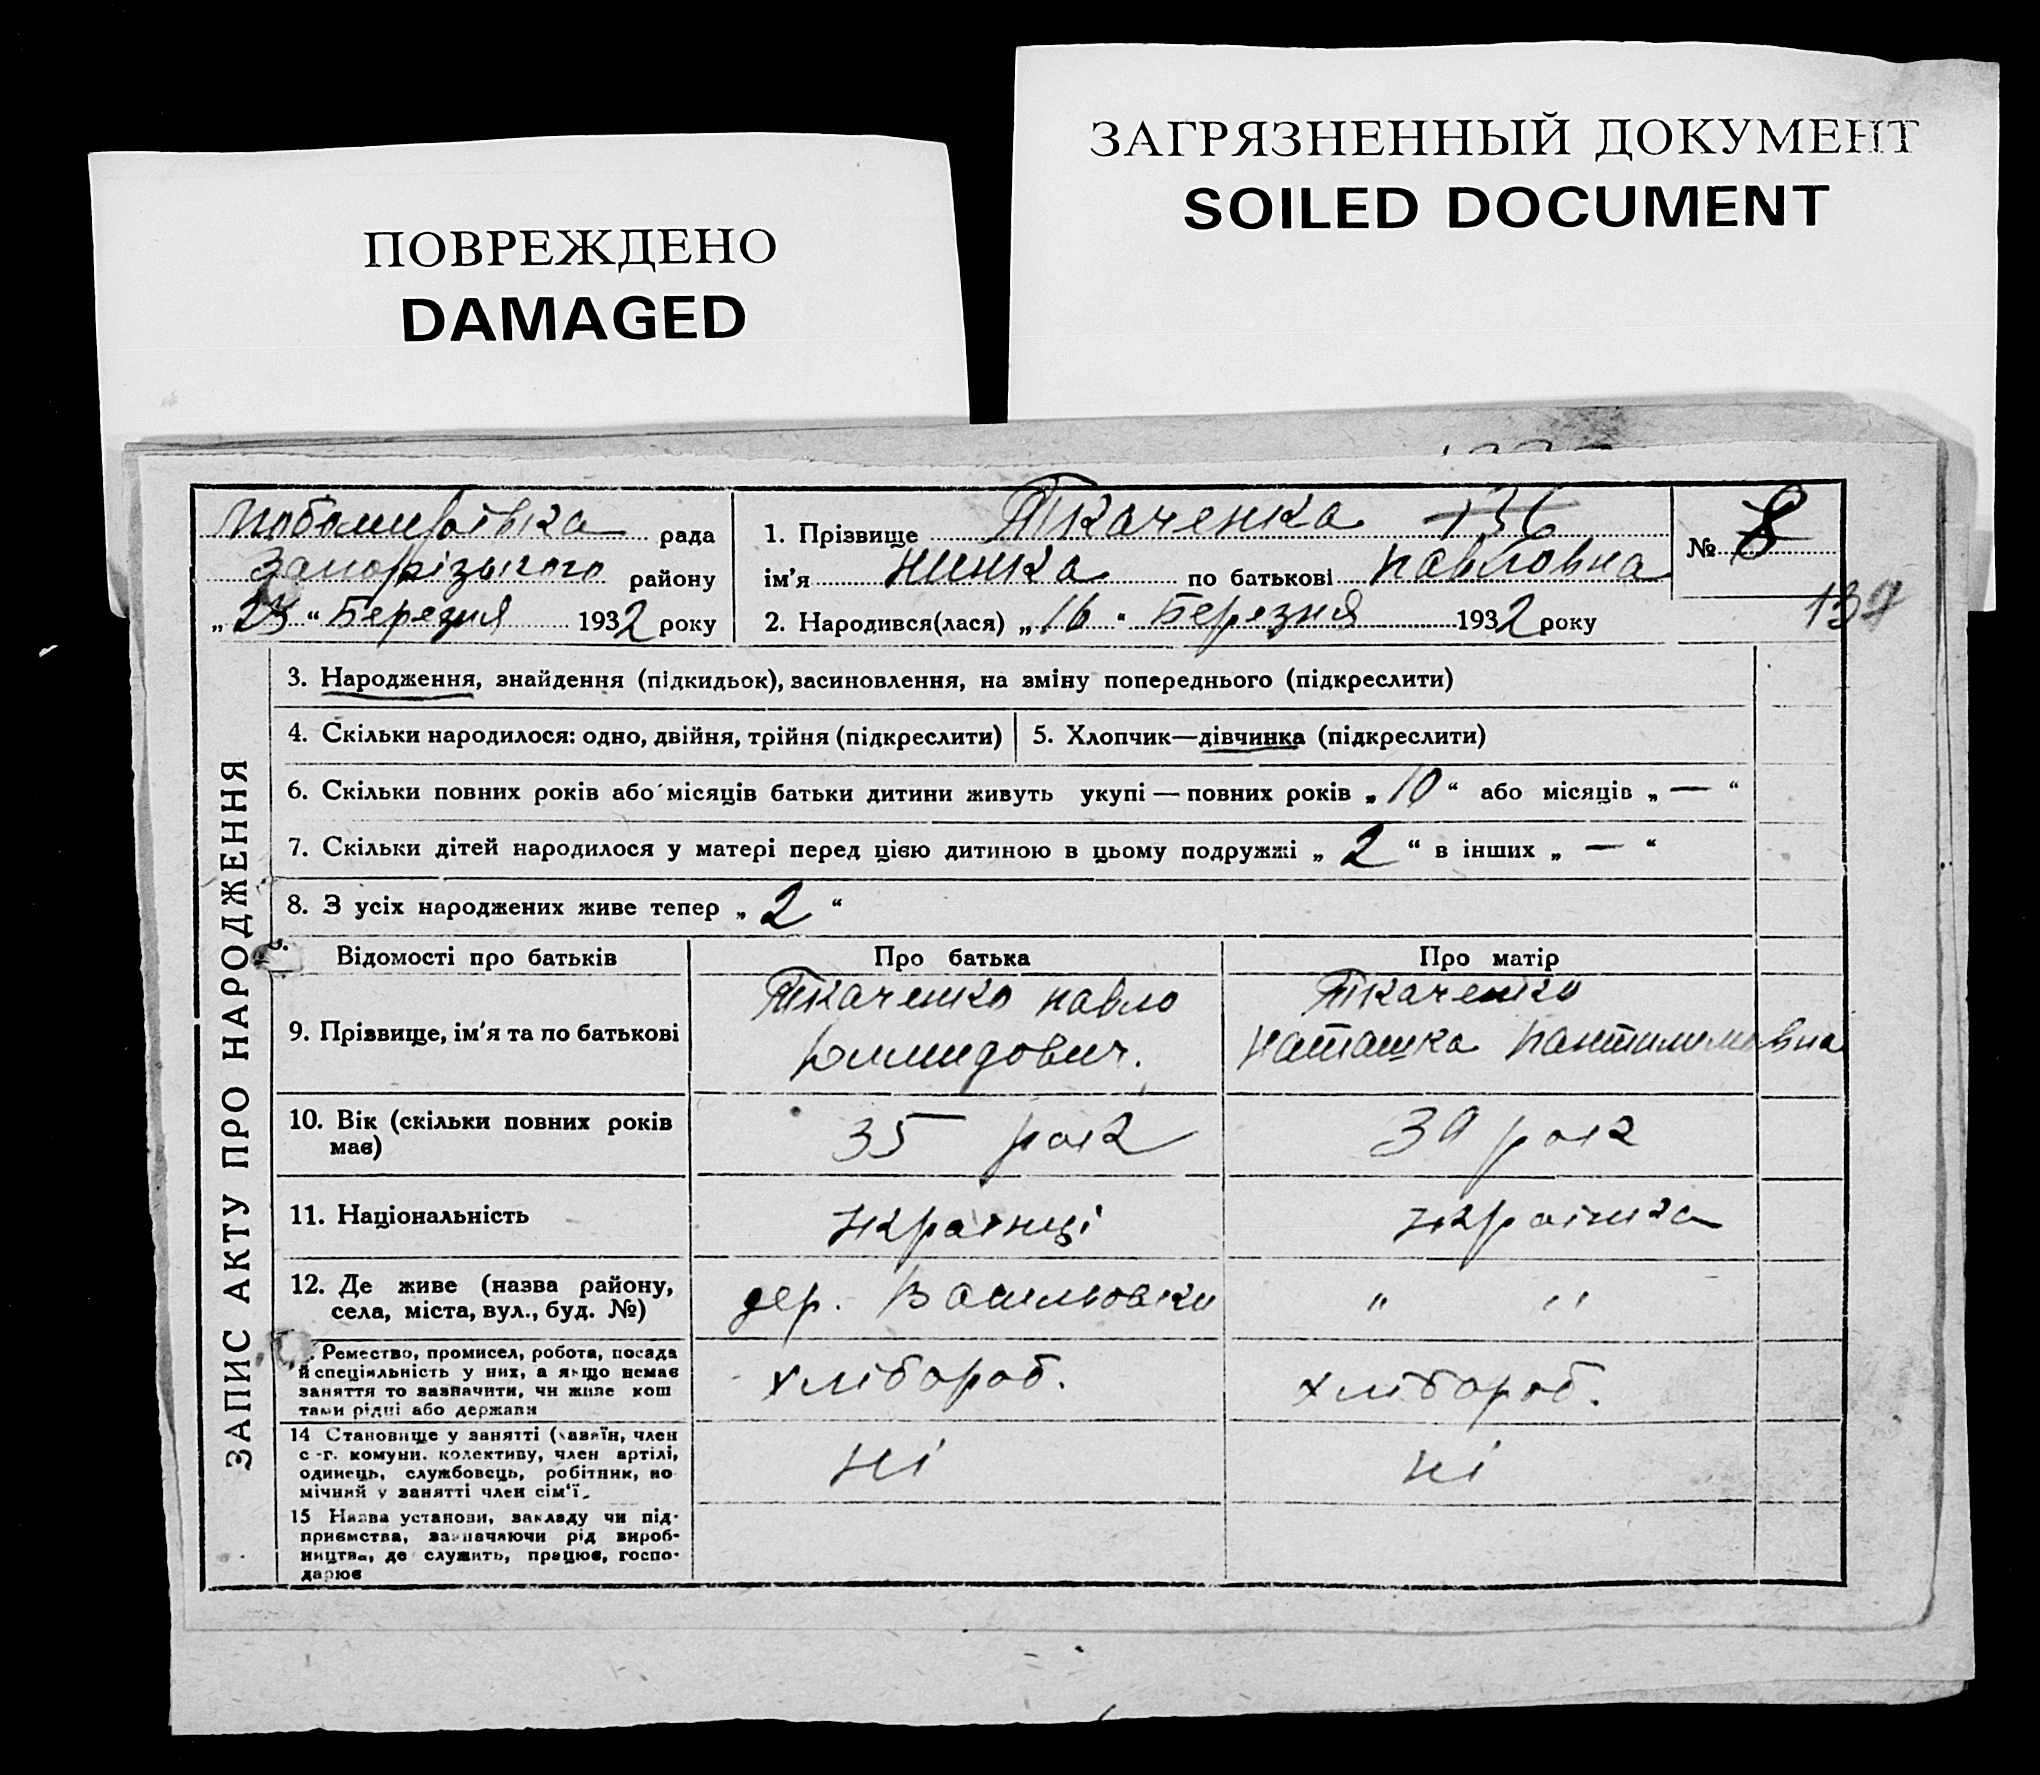 ПОВРЕЖДЕНО
DAMAGED
ЗАГРЯЗНЕННЫЙ ДОКУМЕНТ
SOILED DOCUMENT
ЗАПИС АКТУ ПРО НАРОДЖЕННЯ
рада
Запорізького району
„23“ Березня 1932 року
1. Прізвище Ткаченка 136
ім'я Нинка по батькові Павловна
2. Народився(лася) „16“ Березня 1932 року
№ 8
3. Народження, знайдення (підкидьок), засиновлення, на зміну попереднього (підкреслити)
4. Скільки народилося: одно, двійня, трійня (підкреслити)
5. Хлопчик—дівчинка (підкреслити)
6. Скільки повних років або місяців батьки дитини живуть укупі — повних років „10“ або місяців „—“
7. Скільки дітей народилося у матері перед цією дитиною в цьому подружжі „2“ в інших „—“
8. З усіх народжених живе тепер „2“
Відомості про батьків
Про батька
Про матір
9. Прізвище, ім'я та по батькові
Ткаченко Павло
Ткаченко
Наташка
10. Вік (скільки повних років
має)
35 рок
39 рок
11. Національність
украінці
украінка
12. Де живе (назва району,
села, міста, вул., буд. №)
дер. Васильовки
" "
Ремество, промисел, робота, посада
й спеціяльність у них, а якщо немає
заняття то зазначити, чи живе кош
тами рідні або держави
хлібороб.
хлібороб.
14 Становище у занятті (хазяїн, член
с-г. комуни. колективу, член артілі,
одинець, службовець, робітник, по
мічний у занятті член сім'ї.
ні
ні
15 Назва установи, закладу чи під-
приємства, зазначаючи рід вироб-
ництва, де служить, працює, госпо-
дарює